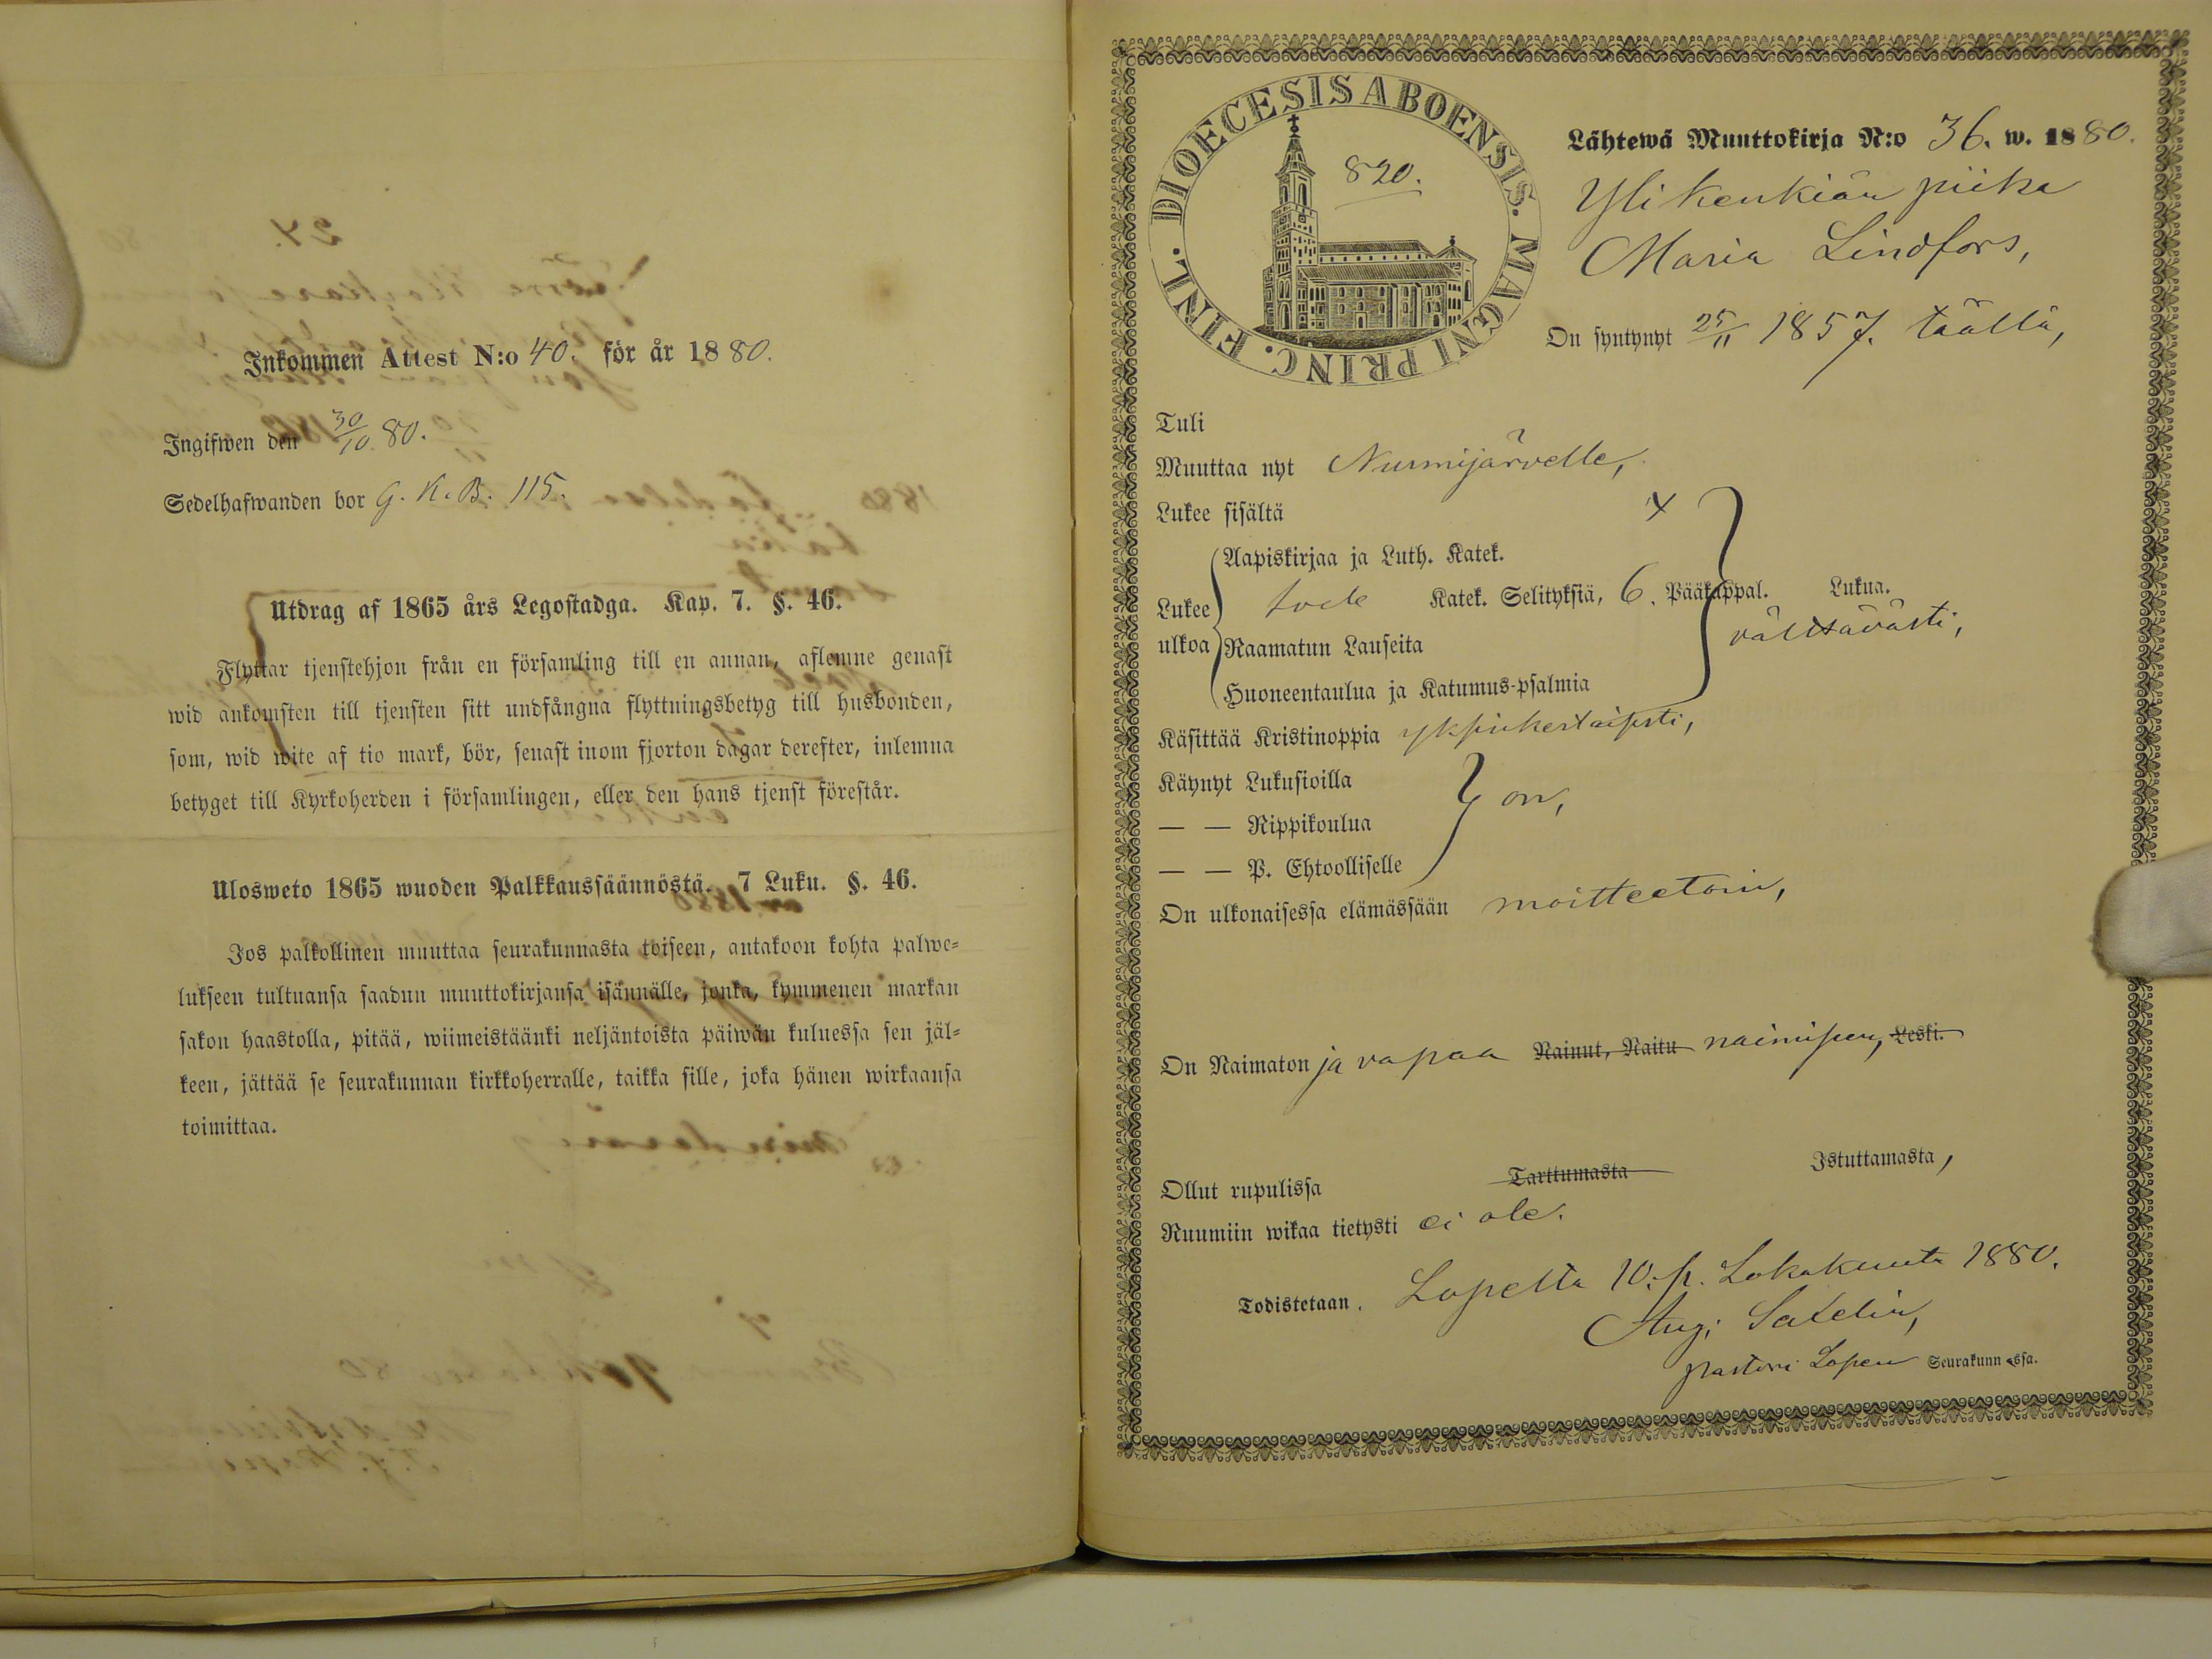 Inkommen Attest N:o 40. för år 1880.
Ingifwen den 30/10. 80.
Sedelhafwanden bor G. K. B. 115.
Utdrag af 1865 års Legostadga. Kap. 7. §. 46.
Flyttar tjenstehjon från en församling till en annan, aflemne genast
wid ankomsten till tjensten sitt undfångna flyttningsbetyg till husbonden,
som, wid wite af tio mark, bör, senast inom fjorton dagar derefter, inlemna
betyget till Kyrkoherden i församlingen, eller den hans tjenst förestår.
Ulosweto 1865 wuoden Palkkaussäännöstä. 7 Luku. §. 46.
Jos palkollinen muuttaa seurakunnasta toiseen, antakoon kohta palwe-
lukseen tultuansa saadun muuttokirjansa isännälle, jonka, kymmenen markan
sakon haastolla, pitää, wiimeistäänki neljäntoista päiwän kuluessa sen jäl-
keen, jättää se seurakunnan kirkkoherralle, taikka sille, joka hänen wirkaansa
toimittaa.
DIOECESIS ABOENSIS. MAGNI PRINC. FINL.
820.
Lähtewä Muuttokirja N:o 36. w. 1880.
Ylikenkiän piika
Maria Lindfors,
On syntynyt 25/11 1857. täällä,
Tuli
Muuttaa nyt Nurmijärvelle,
Lukee sisältä x
Aapiskirjaa ja Luth. Katek.
Lukee Katek. Selityksiä, 6. Pääkappal. Lukua.
välttävästi,
ulkoa Raamatun Lauseita
Huoneentaulua ja Katumus-psalmia
Käsittää Kristinoppia yksinkertaisesti,
Käynyt Lukusioilla
on,
— — Rippikoulua
— — P. Ehtoolliselle
On ulkonaisessa elämässään moitteetoin,
On Naimaton ja vapaa Nainut, Naitu naimiseen, Leski.
Ollut rupulissa Tarttumasta Istuttamasta,
Ruumiin wikaa tietysti ei ole.
Todistetaan. Lopella 10. p. Lokakuuta 1880.
Aug. Salelin,
pastori Lopen Seurakunnassa.